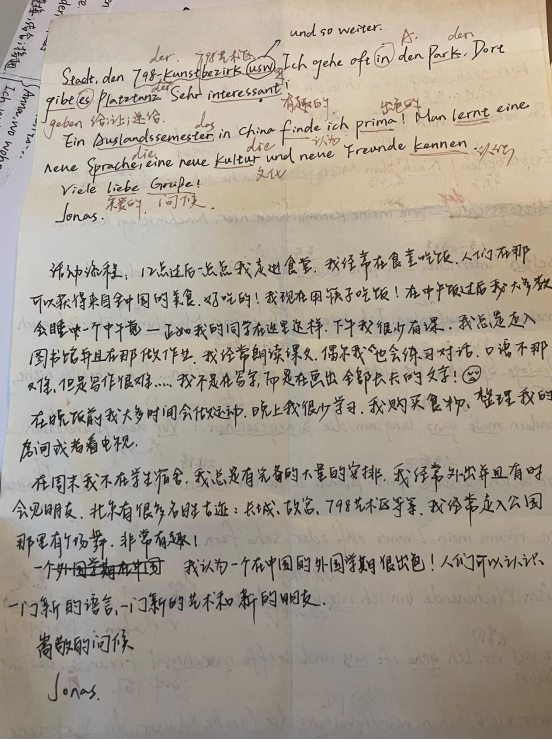 und so weiter.
der. 798艺术区 A. den
Stadt, den 798-Kunstbezirk usw. Ich gehe oft in den Park. Dort
gibt es Platztanz. Sehr interessant!
geben 给;让;递给. 有趣的 出色的
Ein Auslandssemester in China finde ich prima! Man lernt eine
das 认为
neue Sprache, eine neue Kultur und neue Freunde kennen.
die die 认识
文化
Viele liebe Grüße!
亲爱的 问候.
Jonas.
活动流程. 12点过后一点点我走进食堂. 我经常在食堂吃饭. 人们在那
可以获得来自全中国的美食. 好吃的! 我现在用筷子吃饭! 在中午饭过后我大多数
会睡一个中午觉一正如我的同学在这里这样. 下午我很少有课. 我总是走入
图书馆并且在那做作业. 我经常朗读课文, 偶尔我也会练习对话. 口语不那
么难, 但是写作很难.... 我不是在写字, 而是在画出全部长长的文字!
在晚饭前我大多时间会做运动. 晚上我很少学习. 我购买食物, 整理我的
房间或者看电视.
在周末我不在学生宿舍. 我总是有完备的大量的安排. 我经常外出并且有时
会见朋友. 北京有很多名胜古迹: 长城, 故宫, 798艺术区等等. 我经常走入公园
那里有广场舞. 非常有趣!
一个外国学期在中国 我认为一个在中国的外国学期很出色! 人们可以认识
一门新的语言, 一门新的艺术和新的朋友.
崇敬的问候
Jonas.